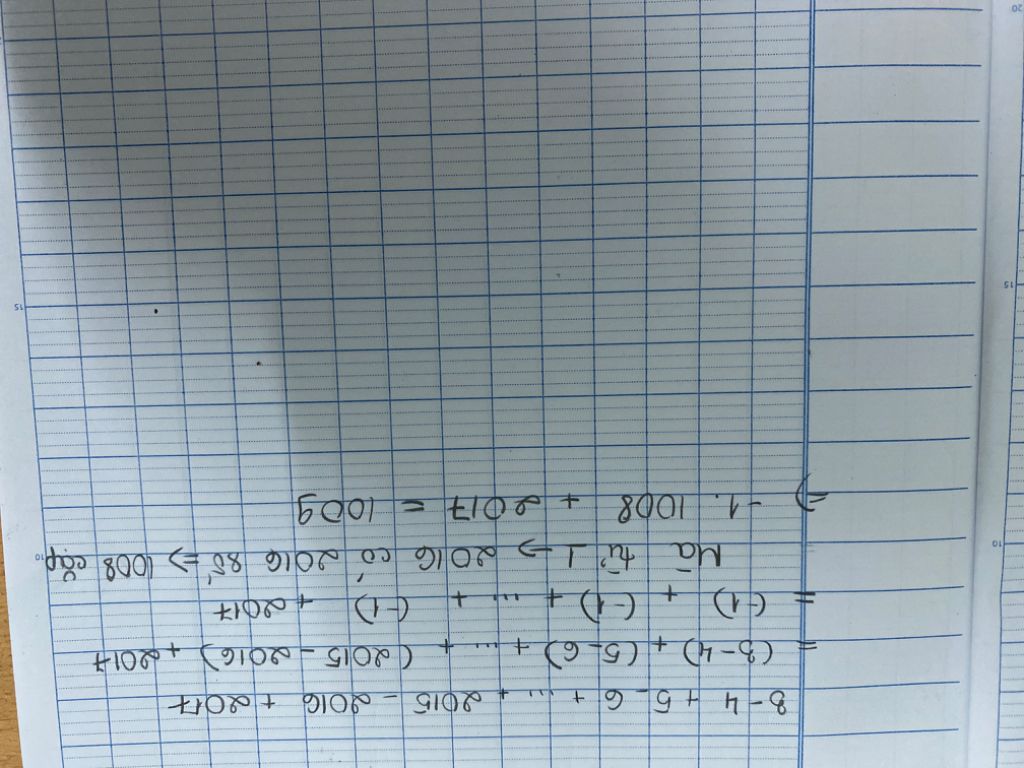 3 - 4 + 5 - 6 + ... + 2015 - 2016 + 2017
= (3 - 4) + (5 - 6) + ... + (2015 - 2016) + 2017
= (-1) + (-1) + ... + (-1) + 2017
Mà từ 1 → 2016 có 2016 số => 1008 cặp
=> -1. 1008 + 2017 = 1009
10
15
10
15
20